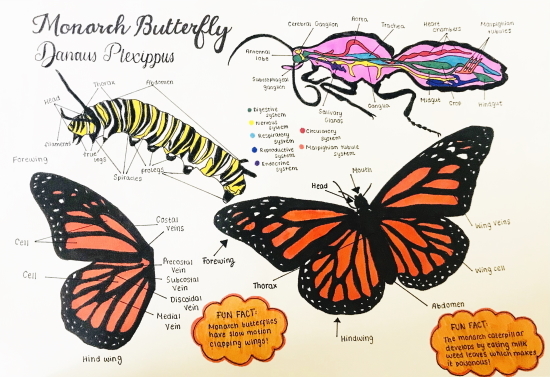 Monarch Butterfly
Danaus Plexippus
Cerebral Ganglion
Aorta
Trachea
Heart
chambers
Malpighian
tubules
Antennal
lobe
Subesophageal
ganglion
Salivary
Glands
Ganglia
Midgut
Crop
Hindgut
Digestive
system
Nervous
system
Respiratory
system
Reproductive
system
Excretory
system
Circulatory
system
Malpighian tubule
system
Head
Thorax
Abdomen
Filament
True
legs
Spiracles
prolegs
Forewing
Cell
Cell
Costal
Veins
Precostal
Vein
Subcostal
Vein
Discoidal
Vein
Medial
Vein
Hind wing
Mouth
Head
Forewing
Thorax
Hindwing
Abdomen
Wing veins
Wing cell
FUN FACT:
Monarch butterflies
have slow motion
clapping wings!
FUN FACT:
The monarch caterpillar
develops by eating milk
weed leaves which makes
it poisonous!